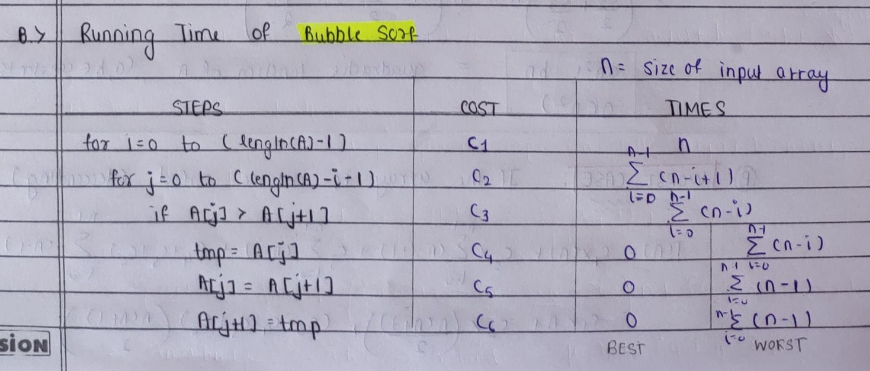 B.> Running Time of Bubble Sort
n = size of input array
STEPS COST TIMES
for i=0 to (length(A)-1) C1 n
for j=0 to (length(A)-i-1) C2 n-1 Σ i=0 (n-i+1)
if A[j] > A[j+1] C3 n-1 Σ i=0 (n-i)
tmp = A[j] C4 0 n-1 Σ i=0 (n-i)
A[j] = A[j+1] C5 0 n-1 Σ i=0 (n-1)
A[j+1] = tmp C6 0 n-1 Σ i=0 (n-1)
SION BEST WORST